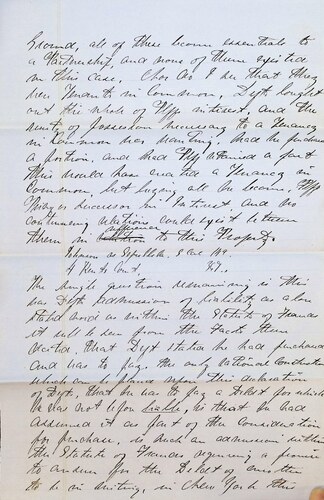 Ground, all of these become essentials to
a Partnership, and none of them existed
in this case, Nor do I see that they
were Tenants in Common, Deft bought
out the whole of Plffs interest, and the
unity of possession necessary to a tenancy
in common was wanting. Had he purchased
a portion, and had Plff retained a part
this would have created a tenancy in
Common, but buying all he became Plffs
successor in Interest, and no
continuing relations could exist between
them in reference to this Property.
The single question remaining is this
was Defts admission of liability as above
stated void as within the Statute of Frauds
it will be seen from the facts then
stated, that Deft stated he had purchased
and has to pay. The only rational construction
which can be placed upon this declaration
of Deft, that he has to pay a Debt for which
he was not before liable, is that he had
assumed it as part of the Consideration
for purchase, is such an admission within
the Statute of Frauds requiring a promise
to answer for the Debt of another
to be in writing, in New York this